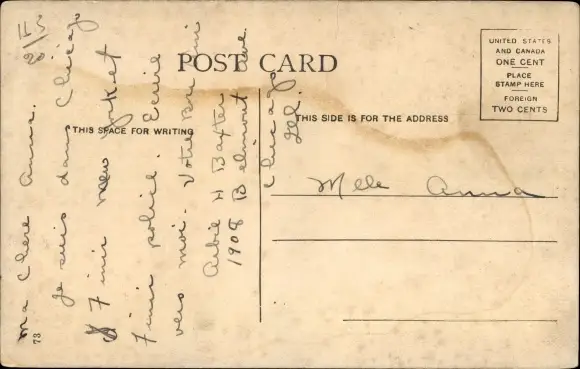 POST CARD
THIS SPACE FOR WRITING
THIS SIDE IS FOR THE ADDRESS
UNITED STATES
AND CANADA
ONE CENT
PLACE
STAMP HERE
FOREIGN
TWO CENTS
Mlle Anna
ma Chere Anna.
Je suis dans Chicago
7 inir new yorket
7 inir police. Ecrire
vers moi. Votre
H Baxter
1908 Belmont Ave
Chicago
Ill.
73